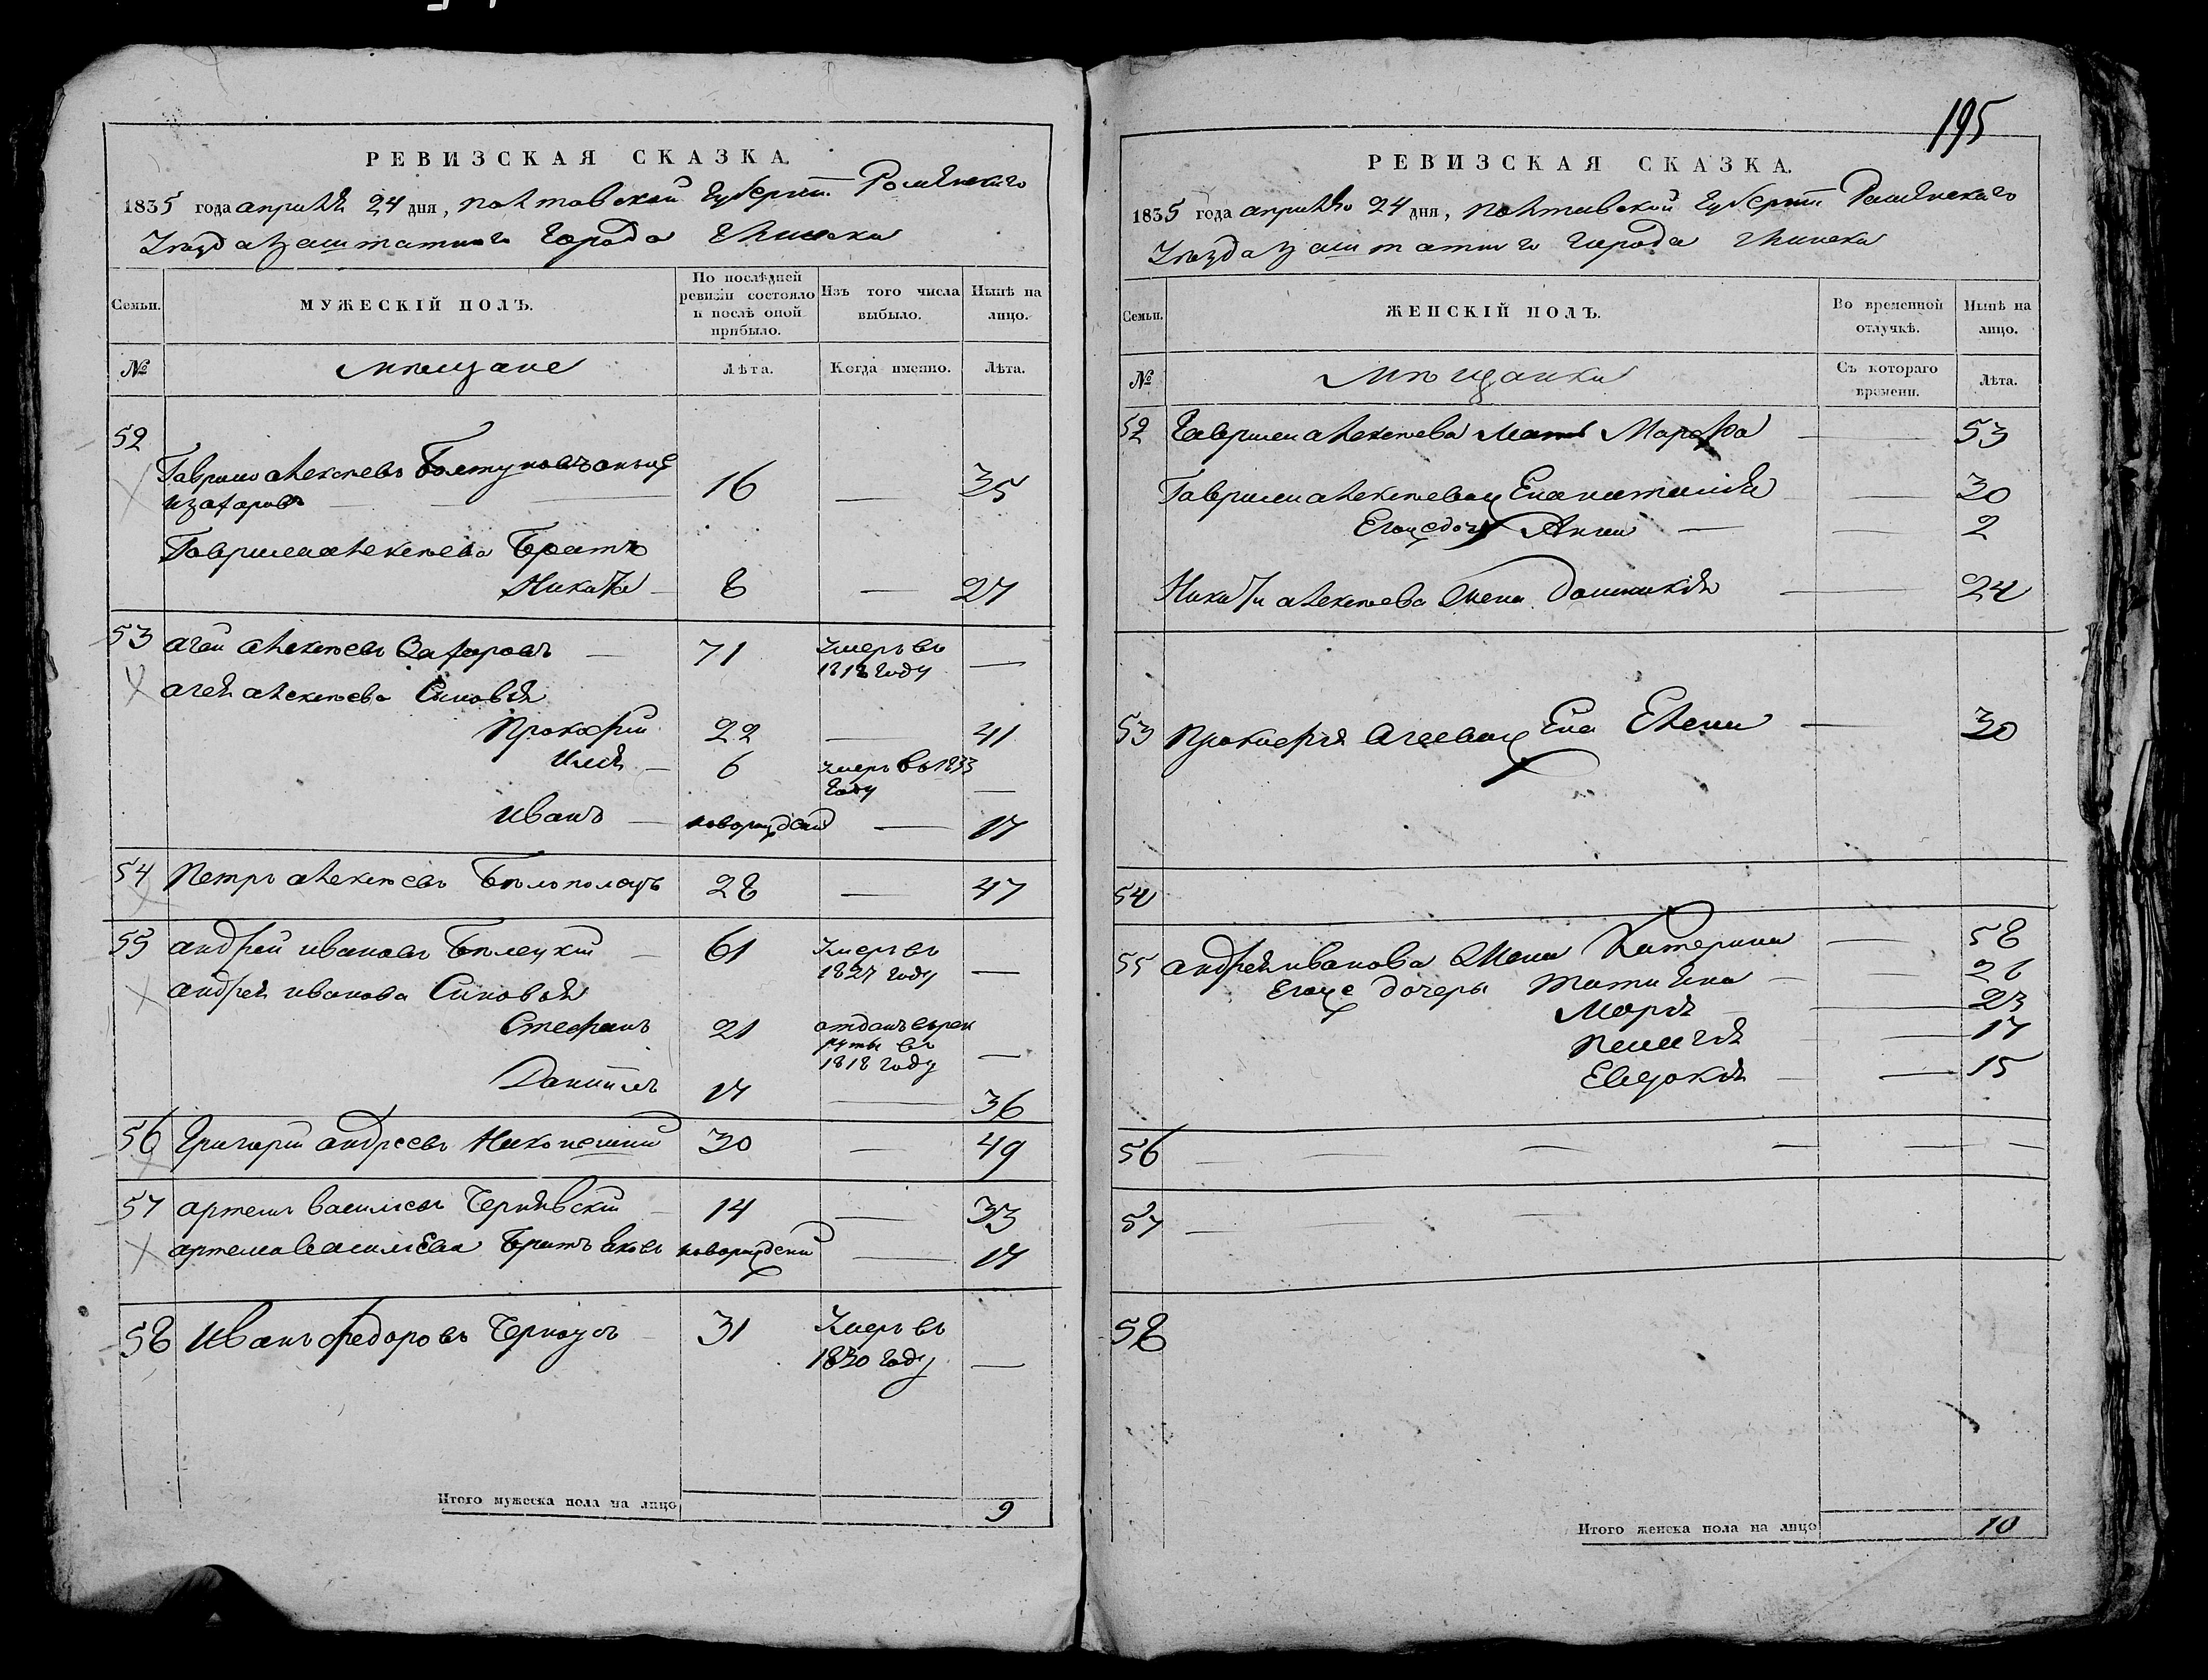 195
РЕВИЗСКАЯ СКАЗКА.
1835 года апрѣля 24 дня, Полтавской Губернiи Роменского
Уезда заштатного Города Глинска
Семьи.
МУЖЕСКІЙ ПОЛЪ.
По послѣдней ревизіи состояло и послѣ оной прибыло.
Изъ того числа выбыло.
Нынѣ на лицо.
№
мѣщане
Лѣта.
Когда именно.
Лѣта.
52
Гаврило Алексѣевъ
Изахаровъ 16 — 35
Гаврила Алексѣева Братъ
Никита 8 — 27
53 Агей Алексѣевъ Захаровъ — 71 Умеръ въ 1818 году —
Агея Алексѣева Сыновья
Прокофiй 22 — 41
Илья — 6 Умеръ въ 1833 Году —
Иванъ — новорожденъ — 17
54 Петръ Алексѣевъ Бѣлополецъ 28 — 47
55 Андрей Ивановъ Белецкiй — 61 Умеръ въ 1827 году —
Андрея Иванова Сыновья
Стефанъ 21 отданъ въ рекруты въ 1818 году —
Данiилъ 17 — 36
56 Григорiй Андреевъ 30 — 49
57 Артемъ Васильевъ Чернявскiй 14 — 33
Артема Васильева Братъ Яковъ новорожденъ — 17
58 Иванъ Федоровъ Черноусъ 31 Умеръ въ 1830 году —
Итого мужеска пола на лицо 9
РЕВИЗСКАЯ СКАЗКА.
1835 года апрѣля 24 дня, Полтавской Губернiи Роменского
Уезда заштатного Города Глинска
Семьи.
ЖЕНСКІЙ ПОЛЪ.
Во временной отлучкѣ.
Нынѣ на лицо.
№
мѣщанки
Съ котораго времени.
Лѣта.
52 Гаврила Алексѣева Мать Марфа — 53
Гаврила Алексѣева Жена Наталiя — 30
Его же дочь Анна — 2
Никиты Алексѣева Жена Домникiя — 24
53 Прокофiя Агеева Жена Елена — 30
54
55 Андрея Иванова Жена Катерина — 58
Его же дочеры Татiяна — 26
Марiя — 23
Пелагiя — 17
Евдокiя — 15
56 — — — — — —
57 — — —
58
Итого женска пола на лицо 10